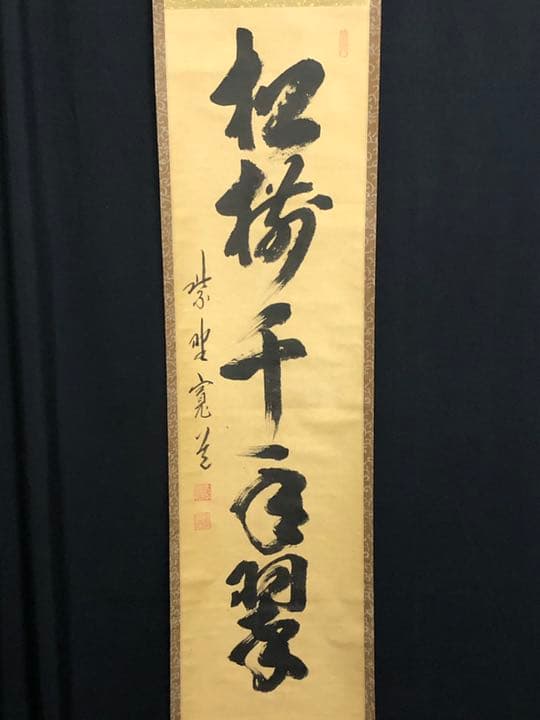 松樹千年翠
紫野寛